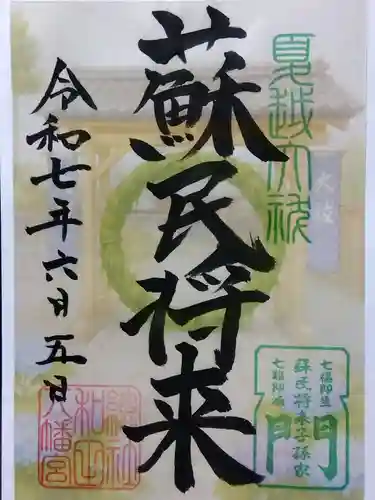 夏越大祓
蘇民将来
令和七年六月五日
大祓
七福即生
蘇民将来子孫家
七難即滅
門
八幡宮